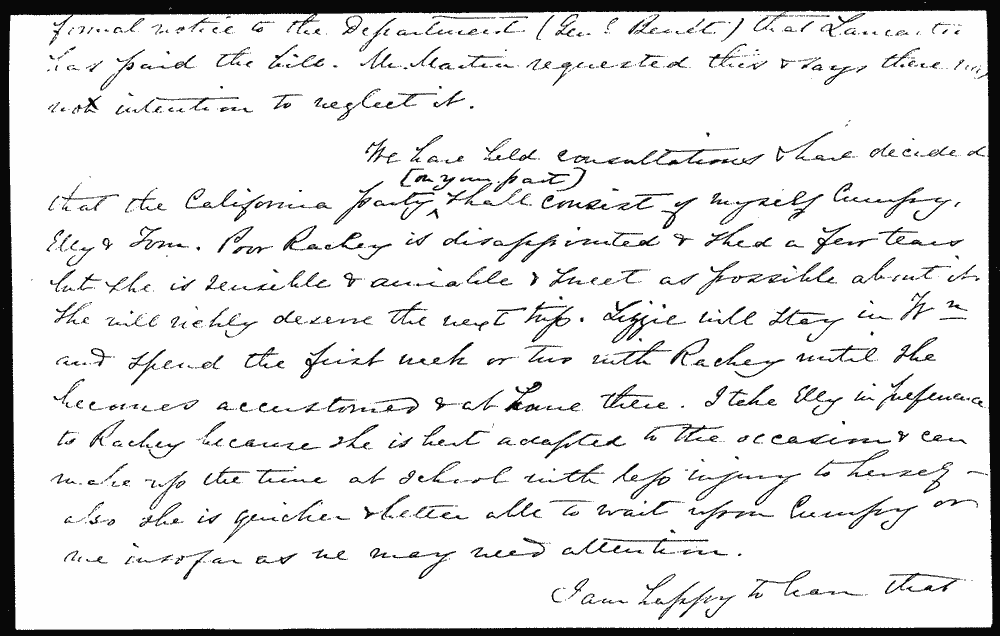 formal notice to the Department (Gen'l Benét) that Lancaster
has paid the bill. Mr. Martin requested this & says there was
not intention to neglect it.
We have held consultations & have decided
[on your part]
that the California party ^ shall consist of myself Cumpy,
Elly & Tom. Poor Rachey is disappointed & shed a few tears
but she is sensible & amiable & sweet as possible about it.
She will richly deserve the next trip. Lizzie will stay in Wn
and spend the first week or two with Rachey until she
becomes accustomed & at home there. I take Elly in preference
to Rachey because she is best adapted to the occasion & can
make up the time at school with less injury to herself –
also she is quicker & better able to wait upon Cumpy or
me insofar as we may need attention.
I am happy to learn that